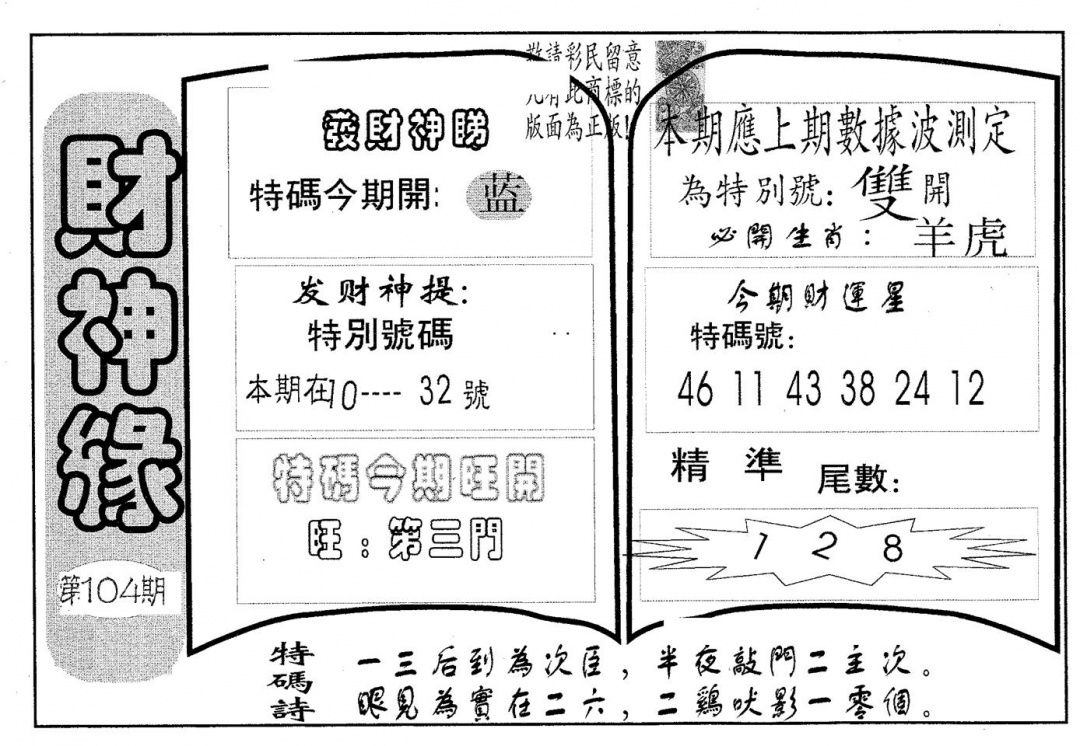 財神緣
第104期
敬請彩民留意
凡有此商標的
版面為正版!
發財神睇
特碼今期開:
蓝
发财神提:
特別號碼
本期在10---- 32 號
特碼今期旺開
旺:第三門
本期應上期數據波測定
為特別號:雙開
必開生肖:羊虎
今期財運星
特碼號:
46 11 43 38 24 12
精 準 尾數:
1 2 8
特碼詩
一三后到為次臣,半夜敲門二主次。
眼見為實在二六,二鷄吠影一零個。